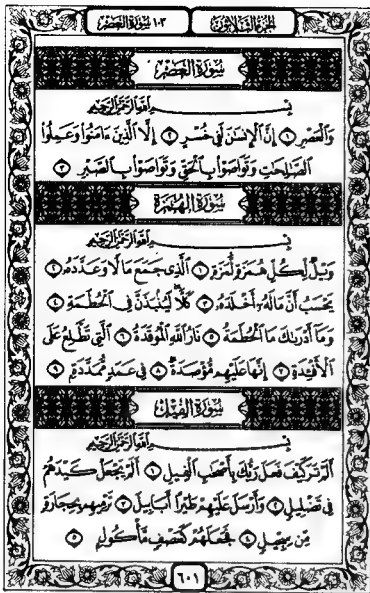 الجزء الثلاثون
١٠٣ سورة العصر
سورة العصر
بسم الله الرحمن الرحيم
وَالْعَصْرِ ١ إِنَّ الْإِنسَانَ لَفِي خُسْرٍ ٢ إِلَّا الَّذِينَ ءَامَنُوا وَعَمِلُوا
الصَّالِحَاتِ وَتَوَاصَوْا بِالْحَقِّ وَتَوَاصَوْا بِالصَّبْرِ ٣
سورة الهمزة
بسم الله الرحمن الرحيم
وَيْلٌ لِّكُلِّ هُمَزَةٍ لُّمَزَةٍ ١ الَّذِي جَمَعَ مَالًا وَعَدَّدَهُ ٢
يَحْسَبُ أَنَّ مَالَهُ أَخْلَدَهُ ٣ كَلَّا لَيُنبَذَنَّ فِي الْحُطَمَةِ ٤
وَمَا أَدْرَاكَ مَا الْحُطَمَةُ ٥ نَارُ اللَّهِ الْمُوقَدَةُ ٦ الَّتِي تَطَّلِعُ عَلَى
الْأَفْئِدَةِ ٧ إِنَّهَا عَلَيْهِم مُّؤْصَدَةٌ ٨ فِي عَمَدٍ مُّمَدَّدَةٍ ٩
سورة الفيل
بسم الله الرحمن الرحيم
أَلَمْ تَرَ كَيْفَ فَعَلَ رَبُّكَ بِأَصْحَابِ الْفِيلِ ١ أَلَمْ يَجْعَلْ كَيْدَهُمْ
فِي تَضْلِيلٍ ٢ وَأَرْسَلَ عَلَيْهِمْ طَيْرًا أَبَابِيلَ ٣ تَرْمِيهِم بِحِجَارَةٍ
مِّن سِجِّيلٍ ٤ فَجَعَلَهُمْ كَعَصْفٍ مَّأْكُولٍ ٥
٦٠١